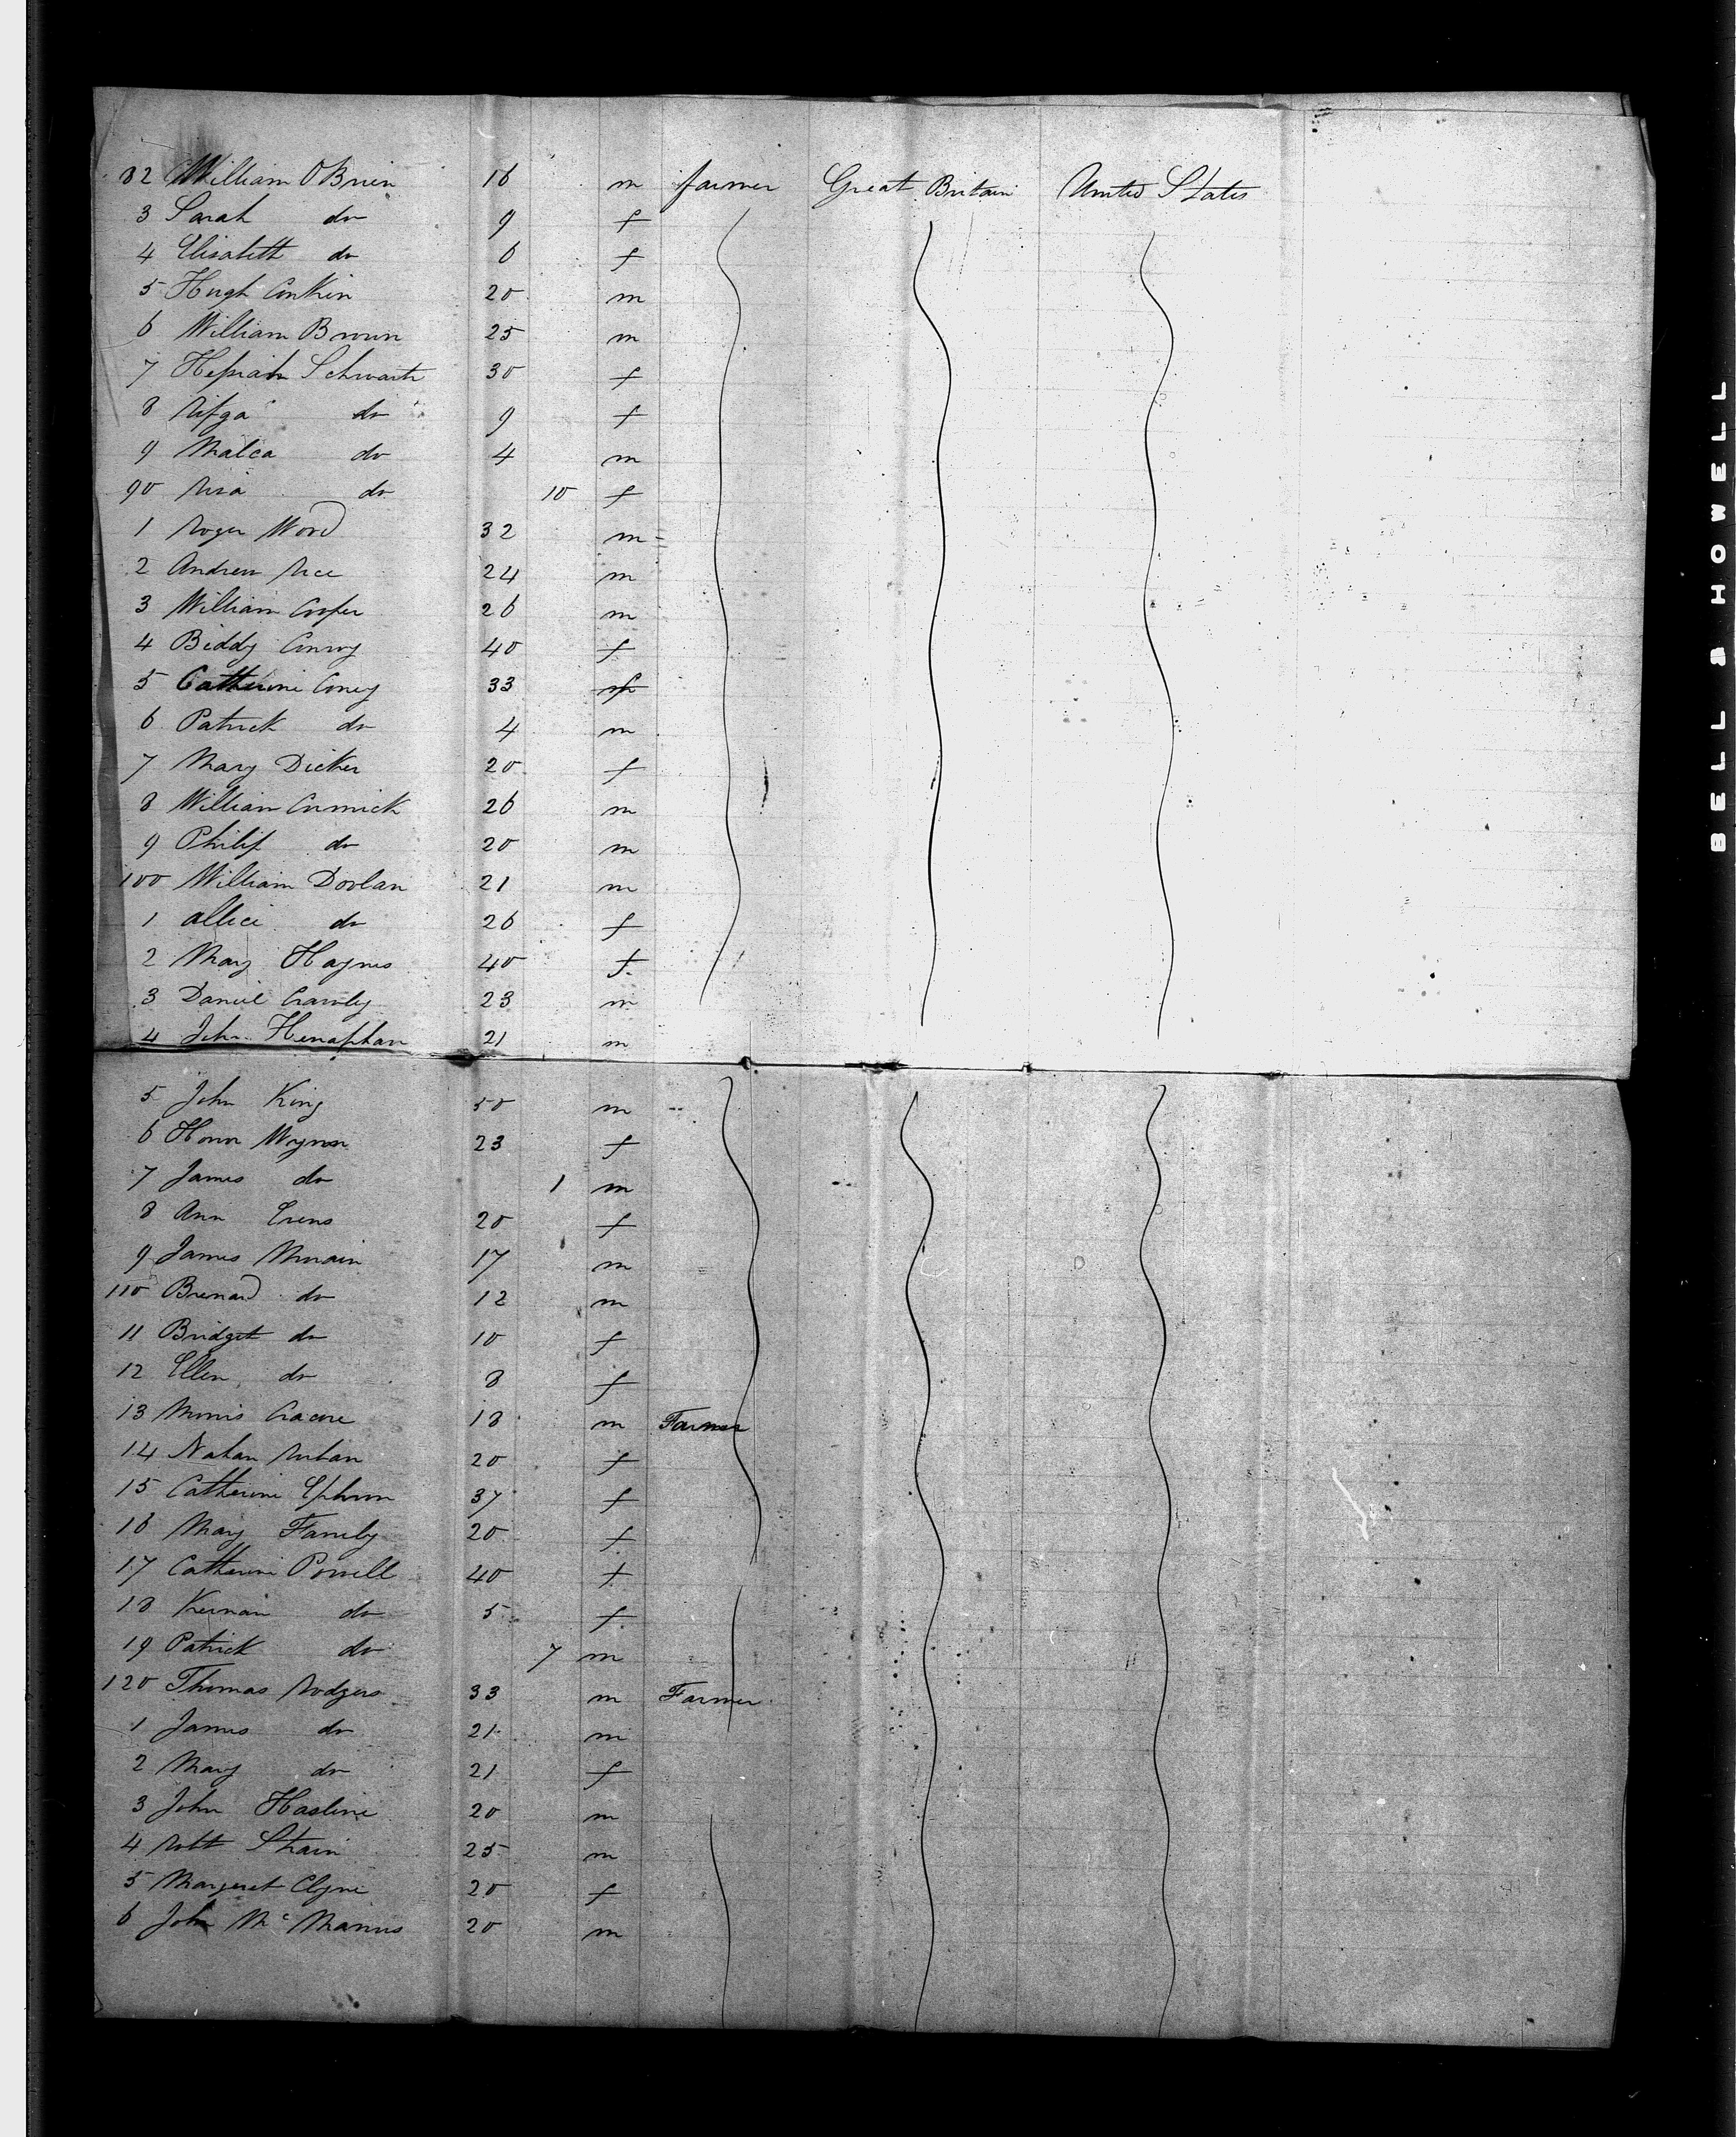 82 William OBrien 16 m farmer Great Britain United States
3 Sarah do 9 f
4 Elisabeth do 6 f
5 Hugh Conkin 20 m
6 William Brown 25 m
7 Schwartz 30 f
8 Rifga do 9 f
9 Malca do 4 m
90 do 10 f
1 Roger Word 32 m
2 Andrew Rice 24 m
3 William Cooper 26 m
4 Biddy Conroy 40 f
5 Catherine Coney 33 f
6 Patrick do 4 m
7 Mary Dicker 20 f
8 William Cormick 26 m
9 Philip do 20 m
100 William Doolan 21 m
1 Allice do 26 f
2 Mary Haynes 40 f
3 Daniel 23 m
4 John 21 m
5 John King 50 m
6 Honor 23 f
7 James do 1 m
8 Ann 20 f
9 James 17 m
110 Brenard do 12 m
11 Bridget do 10 f
12 Ellen do 8 f
13 Morris 18 m Farmer
14 Nathan 20 f
15 Catherine 37 f
16 Mary 20 f
17 Catherine Powell 40 f
18 Kernan do 5 f
19 Patrick do 7 m
120 Thomas Rodgers 33 m Farmer
1 James do 21 m
2 Mary do 21 f
3 John Hasline 20 m
4 Robt Strain 25 m
5 Margeret Clyne 20 f
6 John Mc Manus 20 m
BELL & HOWELL